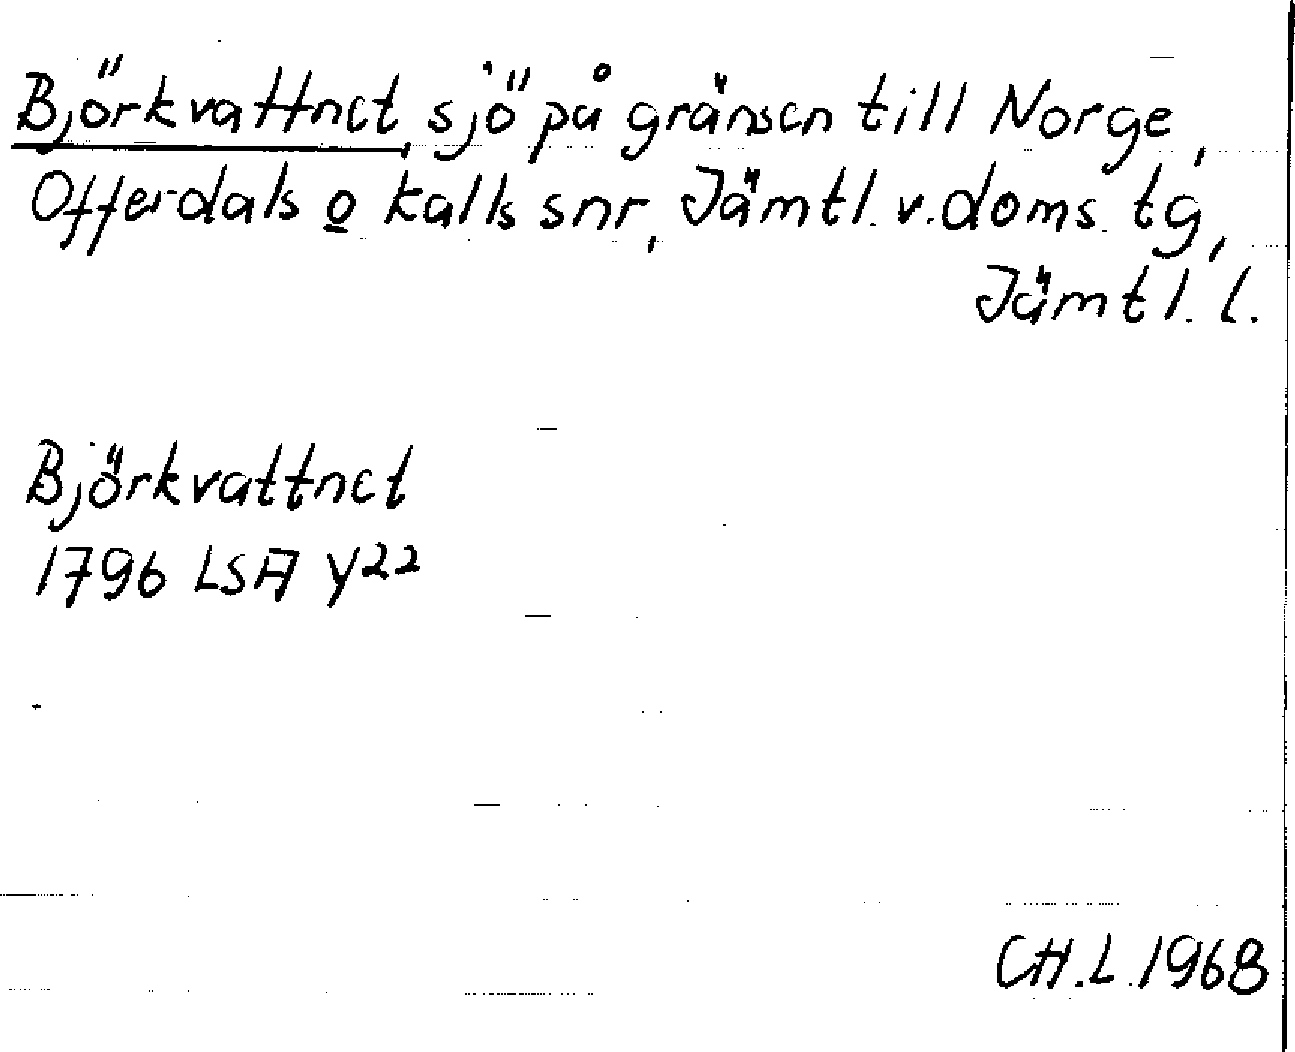 Björkvattnet, sjö på gränsen till Norge,
Offerdals o kalls snr, Jämtl. v. doms. tg,
Jämtl. l.
Björkvattnet
1796 LSA Y22
CH.L. 1968